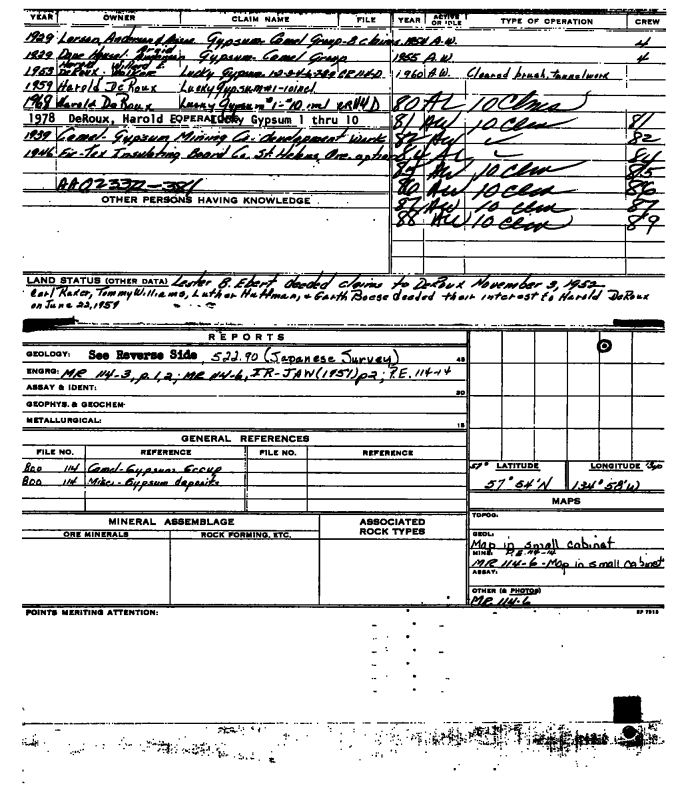 YEAR OWNER CLAIM NAME FILE YEAR ACTIVE OR IDLE TYPE OF OPERATION CREW
1929 Larson, Anderson & Gypsum Camel Group-8 claims 1954 A.W. 4
1929 Gypsum-Camel Group 1955 A.W. 4
1953 DeRoux, Lucky Gypsum 1-2-3-4-6-7-8-9 1960 A.W. Cleared brush, tunnelwork
1959 Harold DeRoux Lucky Gypsum #1-10 incl
1968 Harold DeRoux Lucky Gypsum #1-#10 incl 80 AL 10 Clms
1978 DeRoux, Harold Gypsum 1 thru 10 81 AW 10 Clms 81
1939 Camel Gypsum Mining Co. development work 82 AW ✓ 82
1946 Fir-Tex Insulating Board Co. St Helens, Ore. option 84 AL ✓ 84
85 AW 10 Clms 85
AA023372-381 86 AW 10 Clms 86
OTHER PERSONS HAVING KNOWLEDGE 87 AW 10 Clms 87
88 AW 10 Clms 89
LAND STATUS (OTHER DATA) Lester B. Ebert deeded claims to DeRoux November 3, 1952
Carl Rader, Tommy Williams, Luther Huffman, & Garth Boese deeded their interest to Harold DeRoux
on June 22, 1959
REPORTS
GEOLOGY: See Reverse Side, 522.90 (Japanese Survey) 45
ENGRG: MR 114-3, p. 1, 2; MR 114-6, IR-JAW (1951) p2; P.E. 114-14
ASSAY & IDENT: 30
GEOPHYS. & GEOCHEM:
METALLURGICAL: 15
GENERAL REFERENCES
FILE NO. REFERENCE FILE NO. REFERENCE
800 114 Camel-Gypsum Group
800 114 Misc-Gypsum deposits
57° LATITUDE LONGITUDE
57° 54'N 134° 58'W
MAPS
TOPOG.
MINERAL ASSEMBLAGE ASSOCIATED ROCK TYPES
ORE MINERALS ROCK FORMING, ETC.
GEOL: Map in small cabinet
MINE: P.E. 114-14
MR 114-6 - Map in small cabinet
ASSAY:
OTHER (& PHOTOS)
MR 114-6
POINTS MERITING ATTENTION: